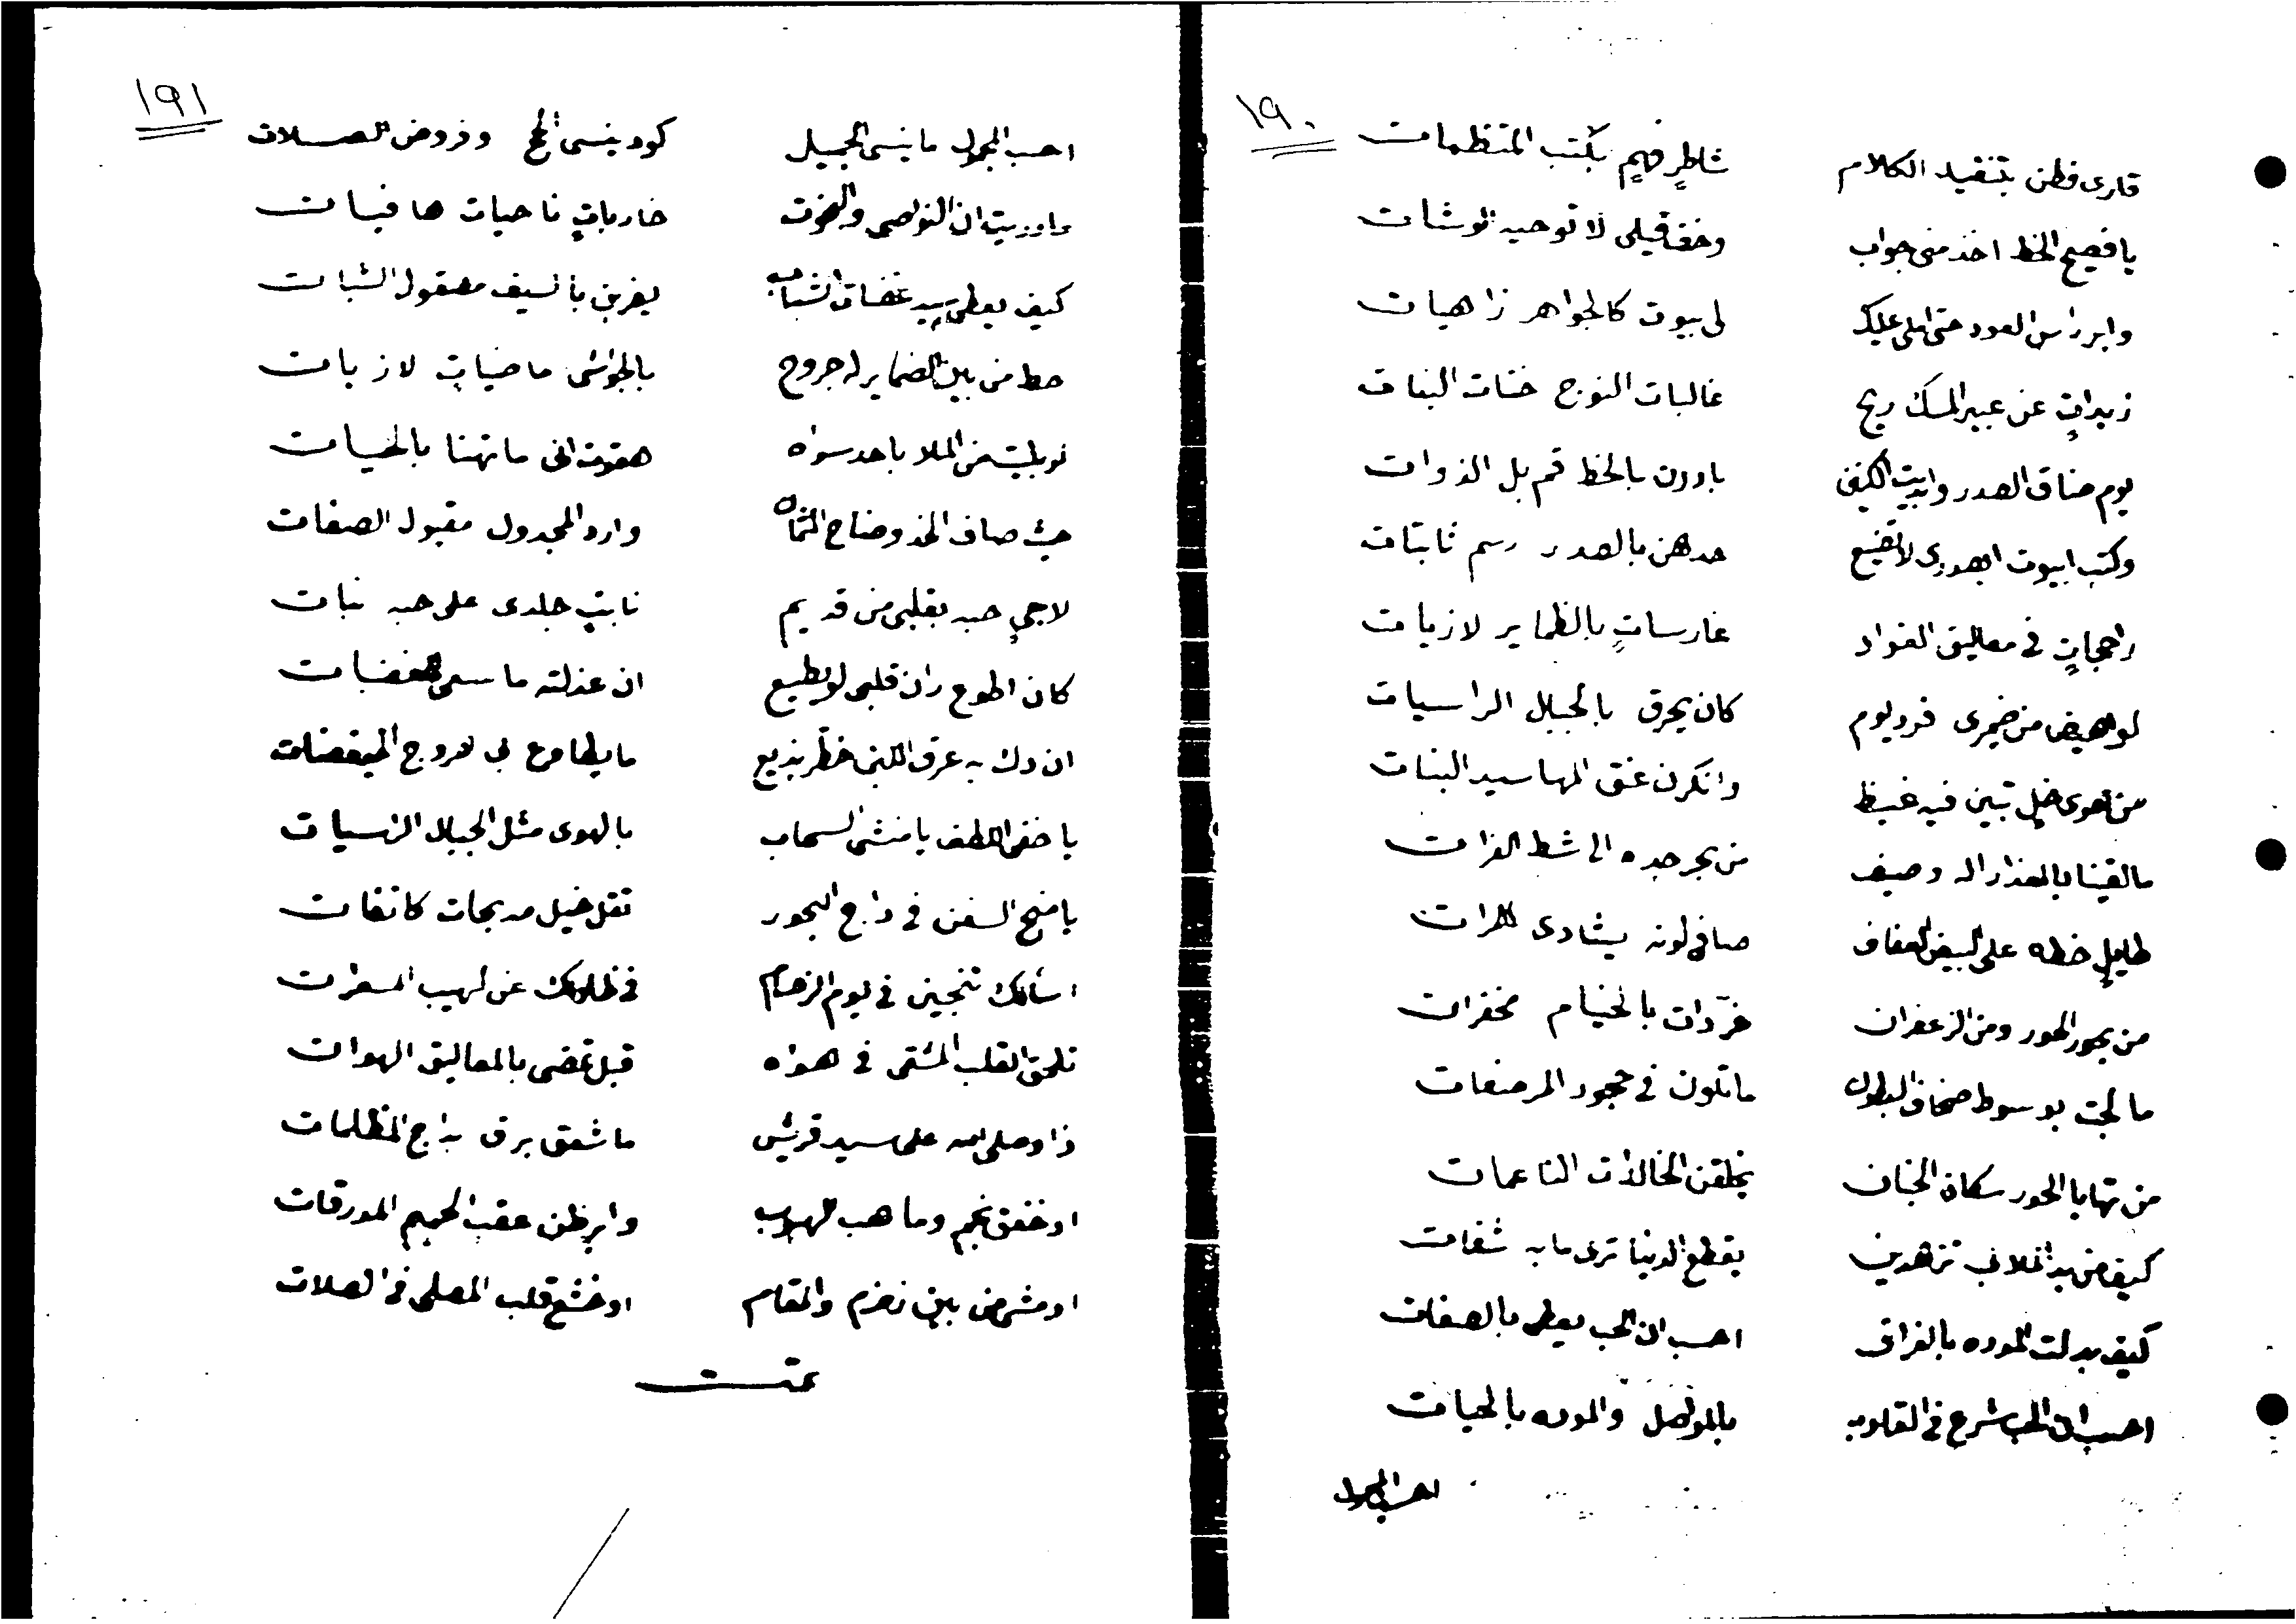 ١٩٠
قارى فطن بتنقيد الكلام شاطرٍ فهيمٍ بكتب المنتظمات
يا فصيح الخط اخذ منى جواب وخفا قيلى لا توحيه الوشات
وابر راس العود حتى املى عليك لى بيوت كالجواهر زاهيات
زبداتٍ عن عبير المسك ريح غاليات النوج ختات البنات
يوم ضاق الصدر وابديت الكنين بادرن بالخط قم بل الذوات
وكتب ابيوت ابصدرى لا تضيع حدهن بالصدر رسم ثابتات
راهجاتٍ فى معاليق الفواد غارساتٍ بالظماير لازيات
لو اهيض من ضميرى فرد يوم كان يحرق بالجبال الراسيات
من اهوى خلٍ تبين فيه غيظ وانكرن عنق المها سيد البنات
ما لقينا بالعذارا له وصيف من بحر جده الى شط الفرات
طايلٍ خطه على البيض العفاف صافى لونه يشادى للمرات
من بحور الحور ومن الزعفران خرّدات بالخيام مخفرات
ما لجت بوسوط ضخاف البطون ما تلون فى حجور المرضعات
من تهايا الحور سكان الجنان يخلقن الخالدات الناعمات
كيف من بد الخلايب تزهدين بقطع الدنيا ترى ما به شفات
كيف بدلت الموده بالفراق احسب ان الحب يعطى بالصفات
احسب ان الحب شرع فى القلوب بالمواصل والموده بالحيات
احسب المجمول

١٩١
احسب المجمول ما ينسى الجميل كود ينسى الحج وفروض الصلات
واوريت ان النواصى والبخوت خارباتٍ ناحيات هافيات
كيف يعطى بيد غضات الشباب يضربن بالسيف مصقول الشبات
حط من بين الضماير له جروح بالحواشى ماضياتٍ لازبات
نوبليت من الملا باحد سواه هقوت انى ما تهنا بالحيات
حيث صاف الخد وضاح الثمان وارد المجدول مقبول الصفات
لاجىٍ حبه بقلبى من قديم نابتٍ جلدى على حبه نبات
كان اطوع وان قلبى لو يطيع ان عذلته ما سعى للمغضبات
ان دك به عرق اللتى خطرٍ بذيع ما يطاوع لى لدروج المبغضات
يا خفى اللطف يا منشى السحاب بالهوى مثل الجبال الراسيات
يا منجح السفن فى داج البحور تقل خيل مدبحات كاتفات
اسالك تنجين فى يوم الزحام فى ظلالك عن لهيب المسعرات
تلحق القلب المشقى فى هواه قبل تمضى بالمعاليق الهوات
ذا وصلى الله على سيد قريش ما شعق برق بداج المظلمات
او خفق نجم وما هب الهبوب وابرظن عقب الحميم المورقات
او مشى من بين زمزم والمقام او خشع قلب المصلى فى الصلات
تمت